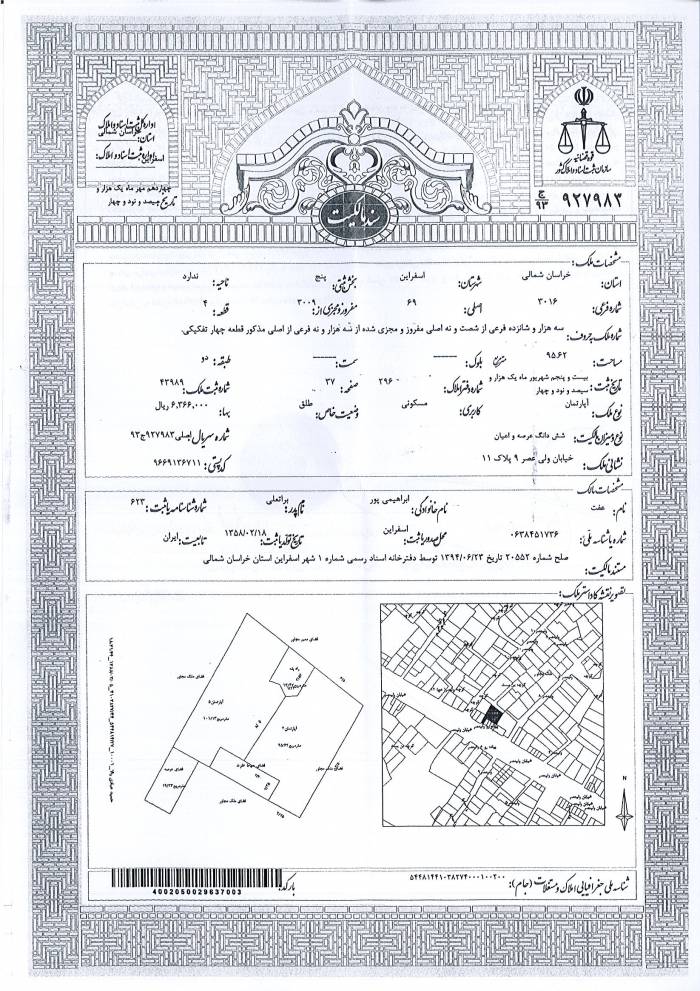 اداره کل ثبت اسناد و املاک
استان: خراسان شمالی
اداره ثبت اسناد و املاک: اسفراین
چهاردهم مهر ماه یک هزار و
تاریخ: سیصد و نود و چهار
سند مالکیت
قوه قضائیه
سازمان ثبت اسناد و املاک کشور
ج ۹۳ ۹۲۷۹۸۳
مشخصات ملک:
استان: خراسان شمالی شهرستان: اسفراین بخش ثبتی: پنج ناحیه: ندارد
شماره فرعی: ۳۰۱۶ اصلی: ۶۹ مفروز و مجزی از: ۳۰۰۹ قطعه: ۴
شماره ملک بحروف: سه هزار و شانزده فرعی از شصت و نه اصلی مفروز و مجزی شده از سه هزار و نه فرعی از اصلی مذکور قطعه چهار تفکیکی.
مساحت: ۹۵.۶۲ مترمربع بلوک: ------ سمت: ------ طبقه: دو
تاریخ ثبت: بیست و پنجم شهریور ماه یک هزار و سیصد و نود و چهار شماره دفتر املاک: ۲۹۶ صفحه: ۳۷ شماره ثبت ملک: ۴۳۹۸۹
نوع ملک: آپارتمان کاربری: مسکونی وضعیت خاص: طلق بها: ۶,۳۶۶,۰۰۰ ریال
نوع و میزان مالکیت: شش دانگ عرصه و اعیان شماره سریال: اصلی ۹۲۷۹۸۳ ج ۹۳
نشانی ملک: خیابان ولی عصر ۹ پلاک ۱۱ کد پستی: ۹۶۶۹۱۳۶۷۱۱
مشخصات مالک:
نام: عفت نام خانوادگی: ابراهیمی پور نام پدر: براتعلی شماره شناسنامه یا ثبت: ۶۲۳
شماره یا شناسه ملی: ۰۶۳۸۴۵۱۷۳۶ محل صدور یا ثبت: اسفراین تاریخ تولد یا ثبت: ۱۳۵۸/۰۲/۱۸ تابعیت: ایران
مستند مالکیت: صلح شماره ۲۰۵۵۲ تاریخ ۱۳۹۴/۰۶/۲۳ توسط دفترخانه اسناد رسمی شماره ۱ شهر اسفراین استان خراسان شمالی
تصویر نقشه کاداستر ملک:
فضای معبر مجاور
فضای ملک مجاور
راه پله
آپارتمان ۵
آپارتمان ۴
فضای ملک مجاور
فضای عرصه
فضای ملک مجاور
خیابان ولیعصر
N
شناسه ملی جغرافیایی املاک و مستغلات (جام): ۵۴۴۸۱۴۴۱-۳۸۲۷۴۰۰۰۱۰۰۲۰۰
بارکد:
4002050029637003